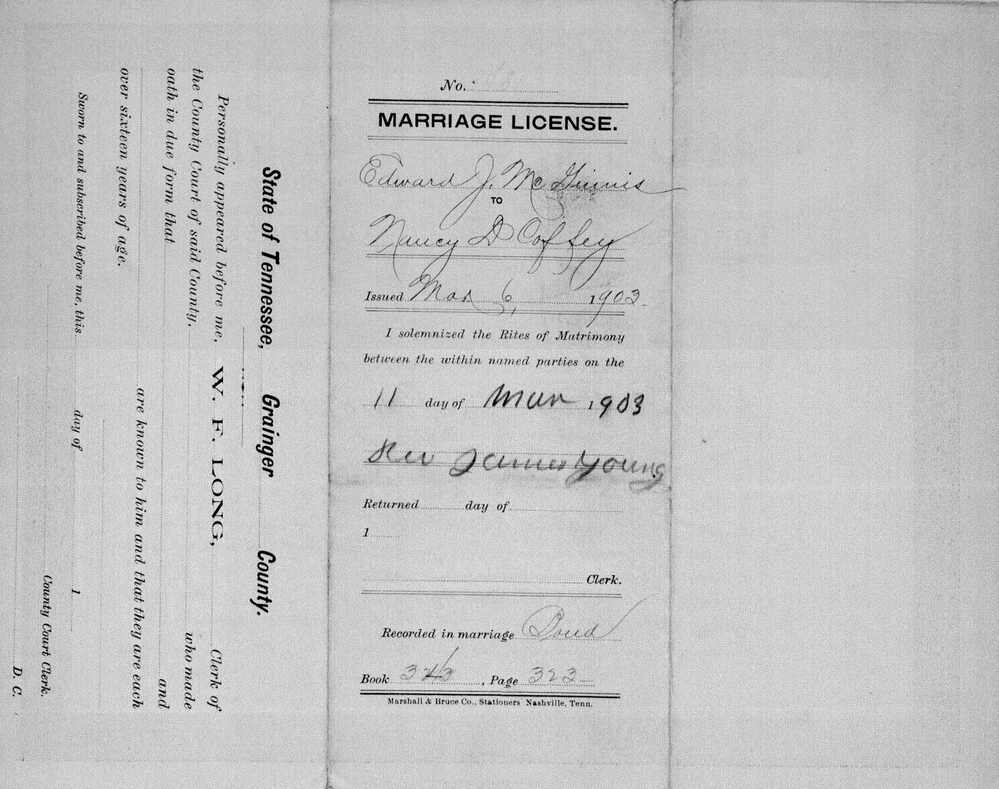 State of Tennessee, Grainger County.
Personally appeared before me, W. F. LONG, Clerk of
the County Court of said County, who made
oath in due form that
and
are known to him and that they are each
over sixteen years of age.
Sworn to and subscribed before me, this day of 1
County Court Clerk.
D. C.
No.
MARRIAGE LICENSE.
Edward J. McGinnis
TO
Nancy D Coffey
Issued Mar 6, 1903
I solemnized the Rites of Matrimony
between the within named parties on the
11 day of Mar 1903
Rev James Young
Returned day of
1
Clerk.
Recorded in marriage Bond
Book , Page 323
Marshall & Bruce Co., Stationers Nashville, Tenn.